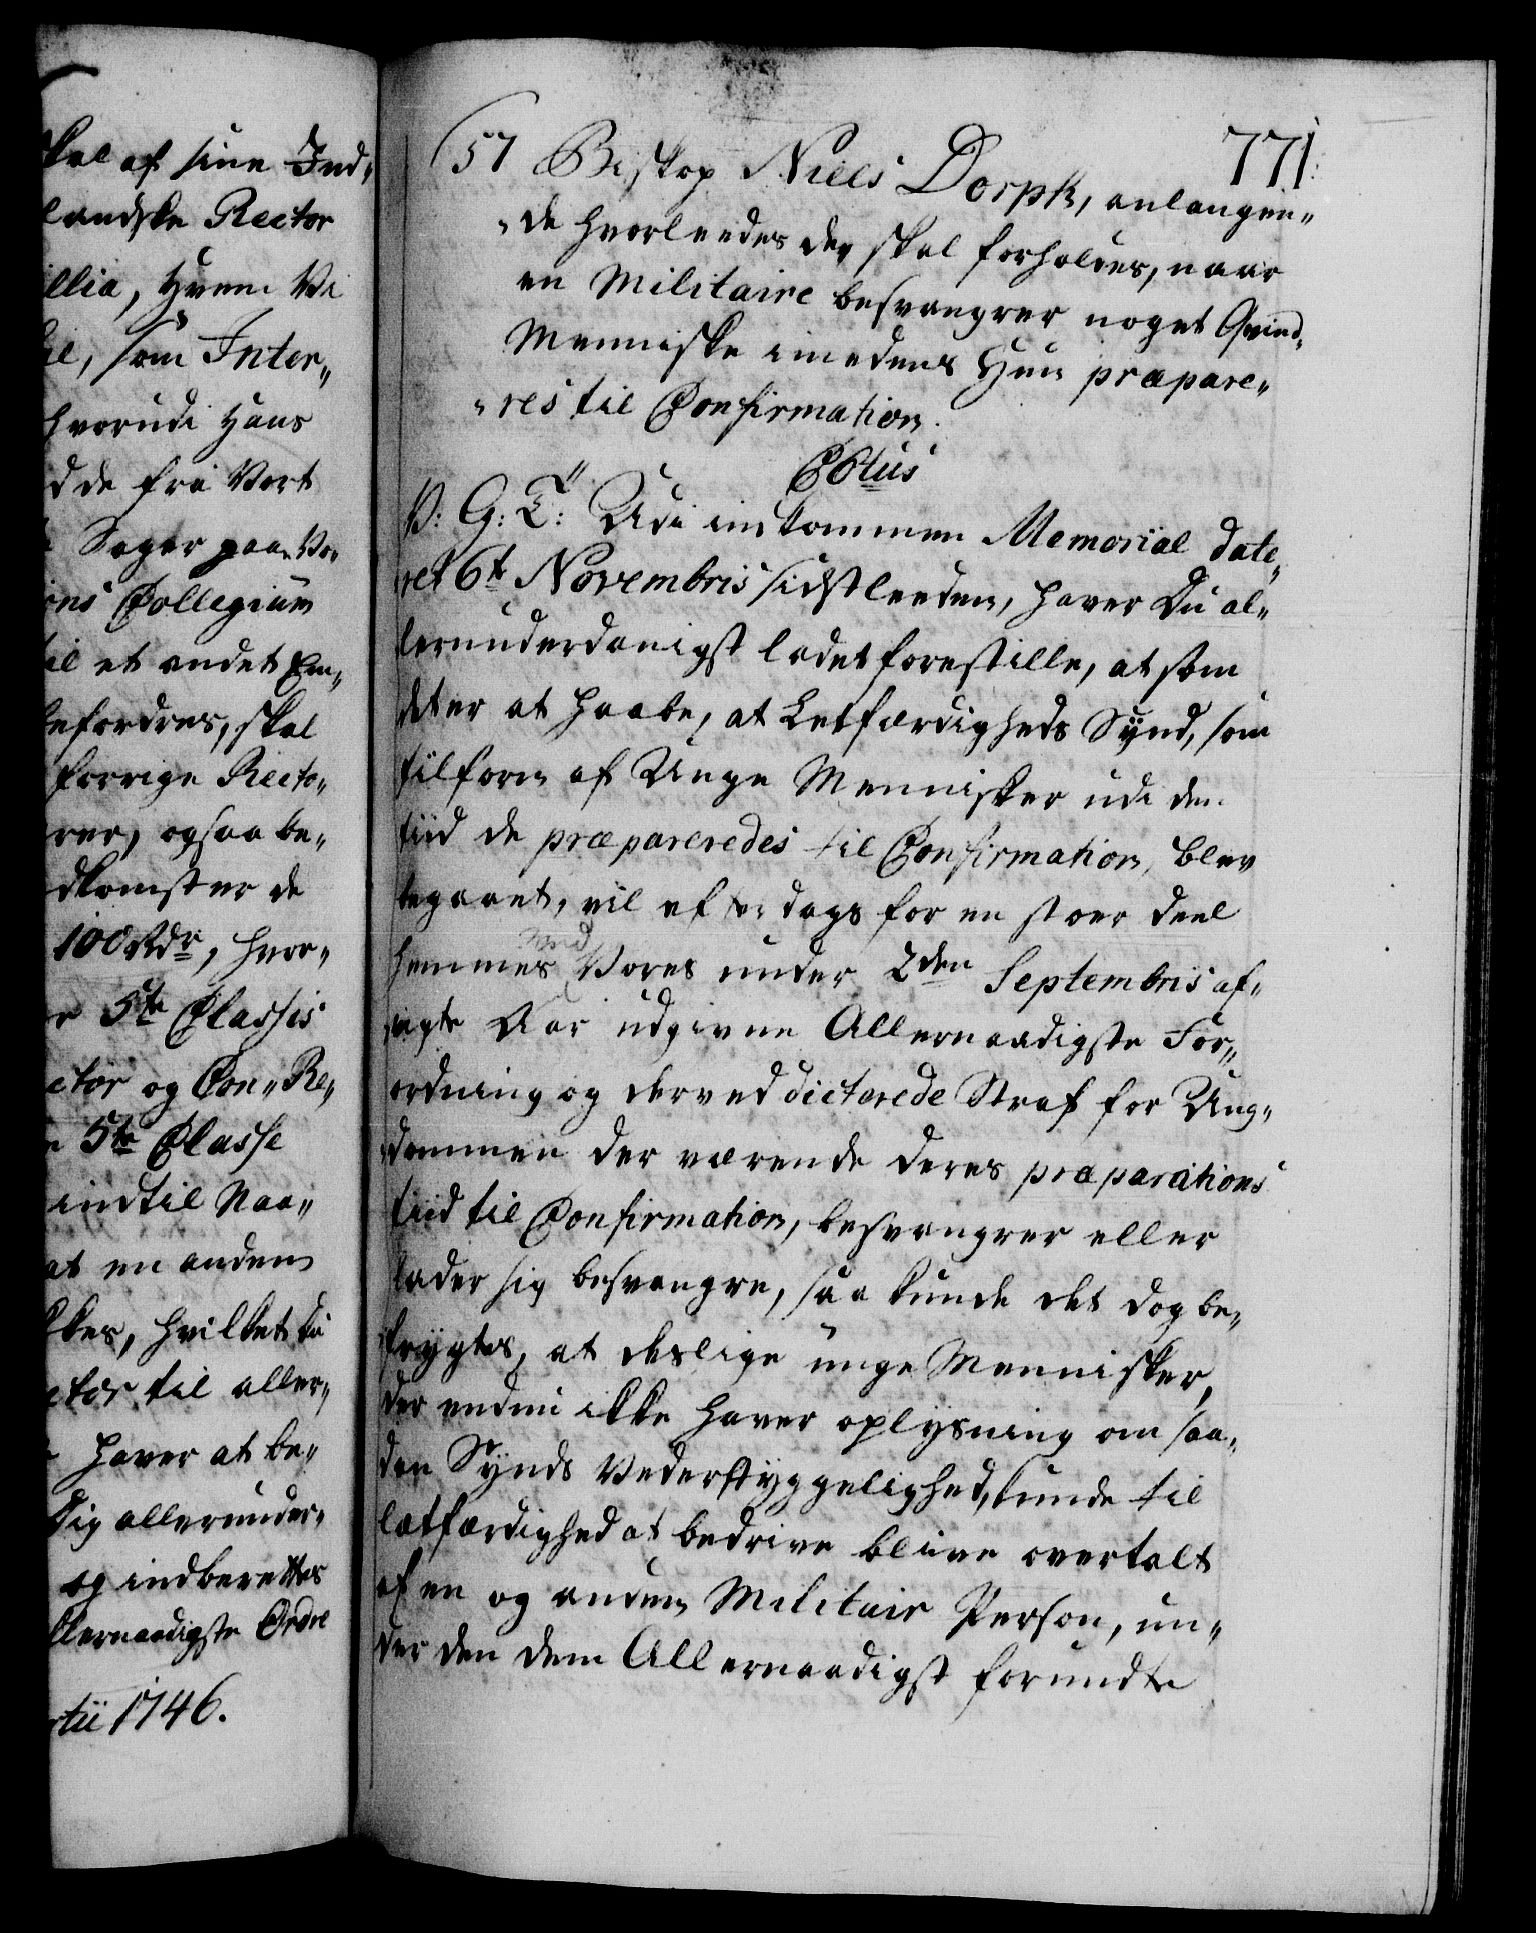 skal af sine Ind„
landske Rector
illia, Hvem Vi
il, som Inter„
hvorudi Hans
d de fra Vort
Sager paa Vo„
ons Collegium
til et andet Em„
befordres, skal
forrige Recto„
rer, ogsaa be„
dkomster de
100 Rdr, hvor„
5te Classis
ector og Con„Re„
5te Classe
indtil Naa„
at en anden
kkes, hvilket du
ector til aller„
haver at be„
Dig allerunder„
og indberettes
llernaadigste Ordre
rtii 1746.
771.
(57 Biskop Niels Dorph, anlangen„
„de hvorleedes der skal forholdes, naar
en Militaire besvangrer noget Qvind„
Menniske imedens Hun præpare„
„res til Confirmation.
C6tus
V: G: T: Udi indkommen Memorial date„
ret 6t Novembris sidstleeden, haver Du al„
lerunderdanigst ladet forestille, at som
det er at haabe, at Letfærdigheds Synd, som
tilforn af Unge Mennisker udi den
tiid de præpareredes til Confirmation, blev
begaaet, vil efter dags for en stoer deel
hemmes ved Vores under 2den Septembris af„
vigte Aar udgivne Allernaadigste For„
ordning og derved dicterede Straf for Ung„
dommen der værende deres præparations
tiid til Confirmation, besvangrer eller
lader sig besvangre, saa kunde det dog be„
frygtes, at deslige unge Mennisker,
der endnu ikke haver oplysning om saa„
dan Synds Vederstyggelighed, kunde til
letfærdighed at bedrive blive overtalt
af en og anden Militair Person, un„
der den dem Allernaadigst forundte